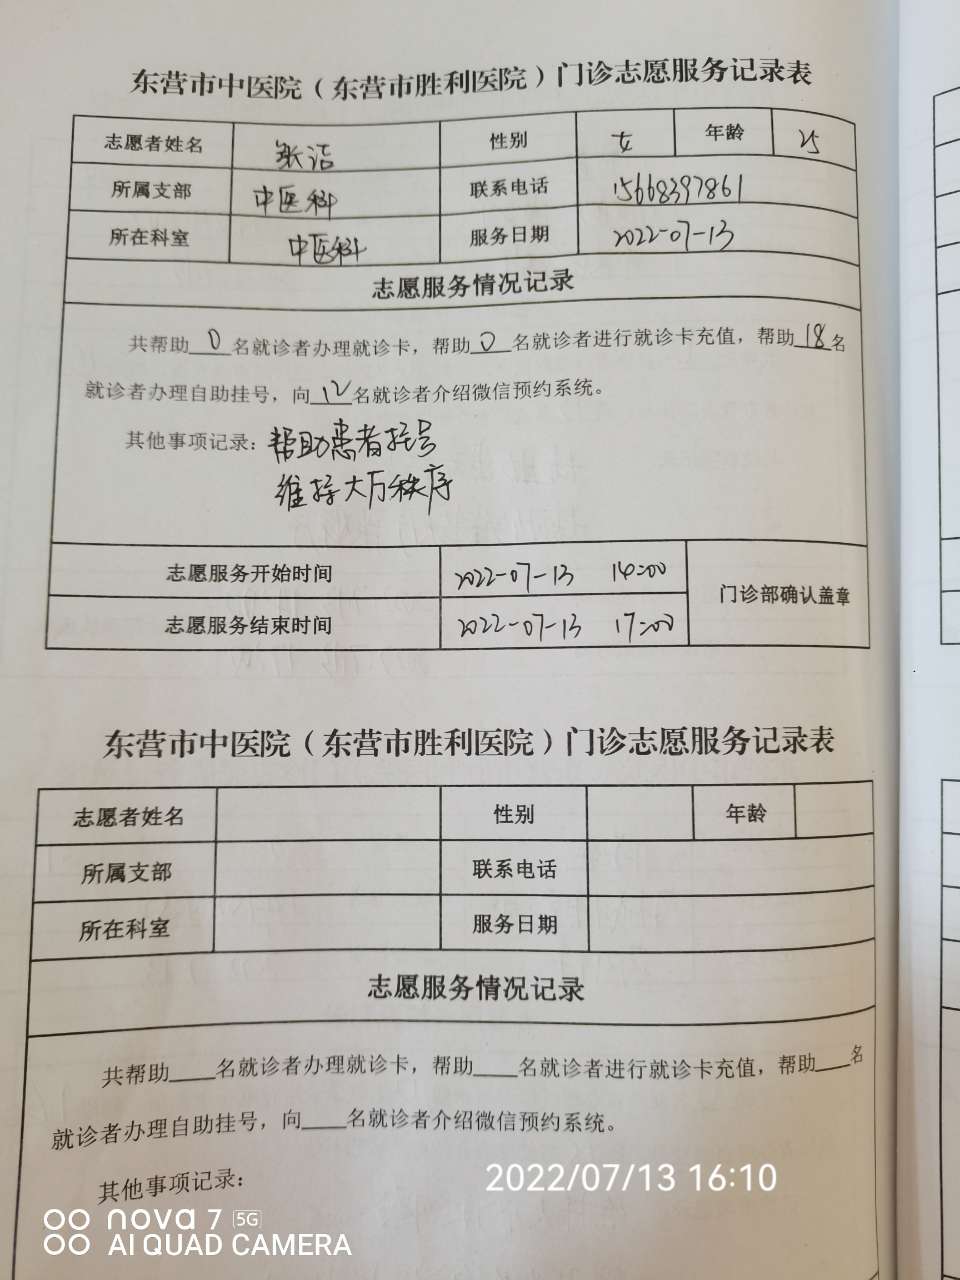 东营市中医院（东营市胜利医院）门诊志愿服务记录表
志愿者姓名 张洁 性别 女 年龄 25
所属支部 中医科 联系电话 15668397861
所在科室 中医科 服务日期 2022-07-13
志愿服务情况记录
共帮助0名就诊者办理就诊卡，帮助0名就诊者进行就诊卡充值，帮助18名
就诊者办理自助挂号，向12名就诊者介绍微信预约系统。
其他事项记录：帮助患者挂号
维持大厅秩序
志愿服务开始时间 2022-07-13 14:00 门诊部确认盖章
志愿服务结束时间 2022-07-13 17:00
东营市中医院（东营市胜利医院）门诊志愿服务记录表
志愿者姓名 性别 年龄
所属支部 联系电话
所在科室 服务日期
志愿服务情况记录
共帮助____名就诊者办理就诊卡，帮助____名就诊者进行就诊卡充值，帮助___名
就诊者办理自助挂号，向____名就诊者介绍微信预约系统。
其他事项记录：
2022/07/13 16:10
nova 7 5G
AI QUAD CAMERA